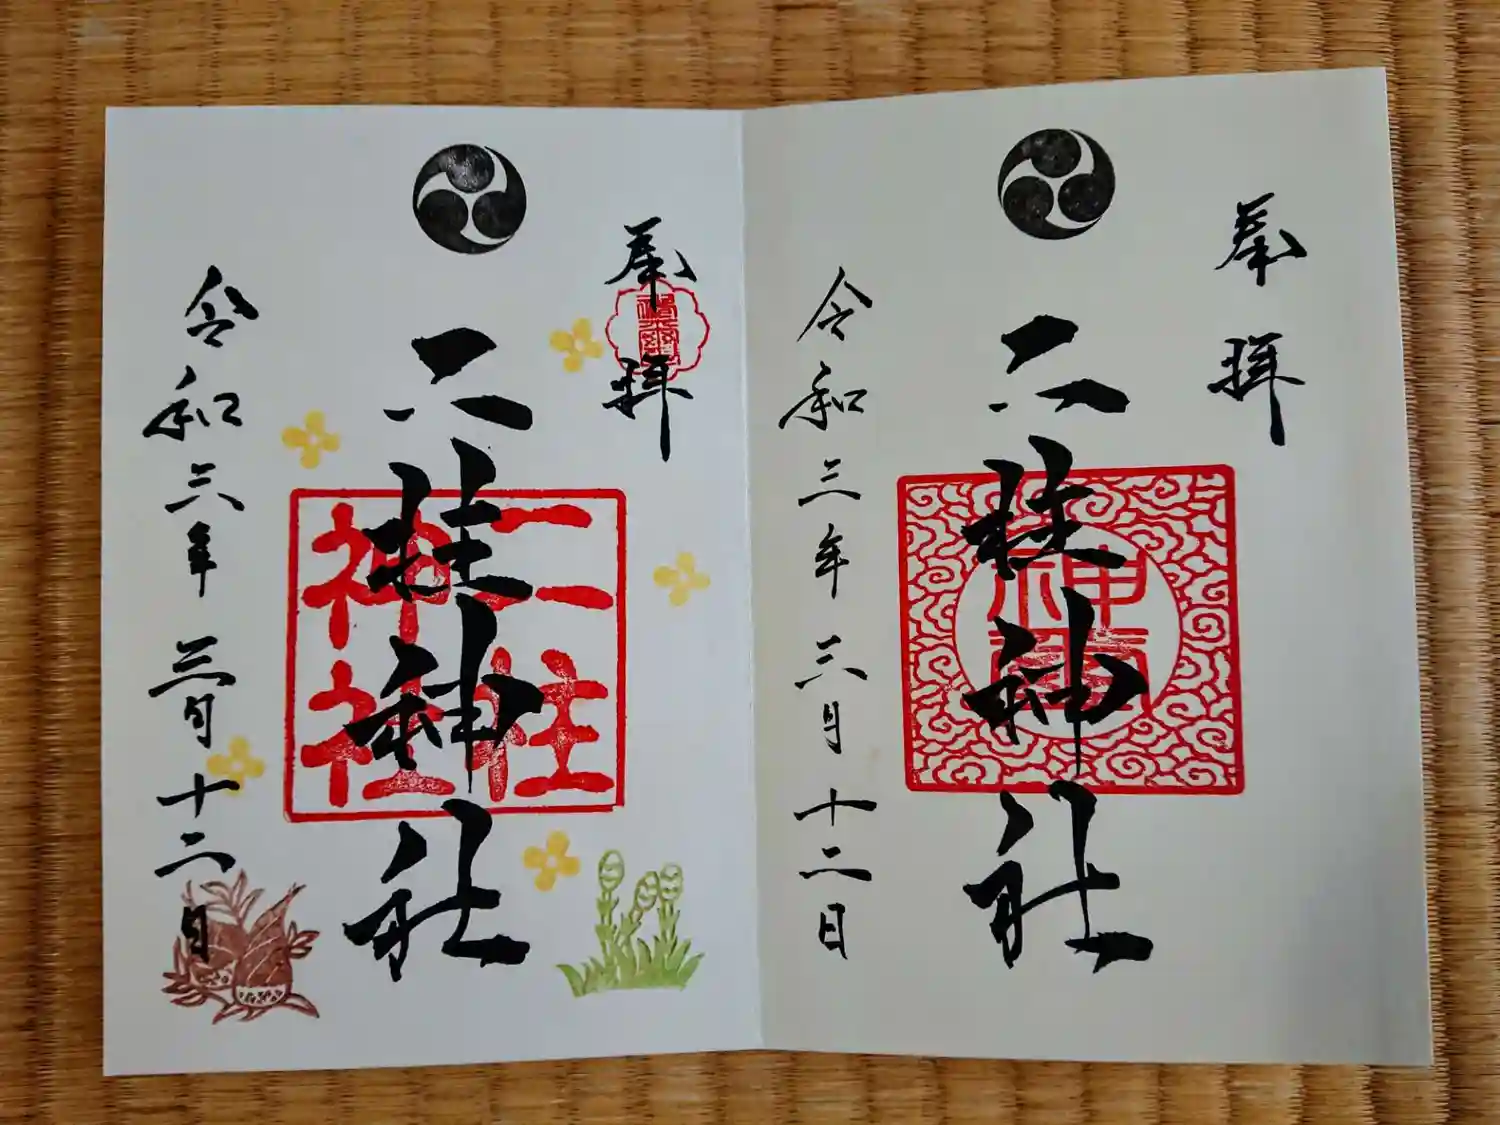 奉拝
二柱神社
令和三年三月十二日
二柱神社
奉拝
二柱神社
令和三年三月十二日